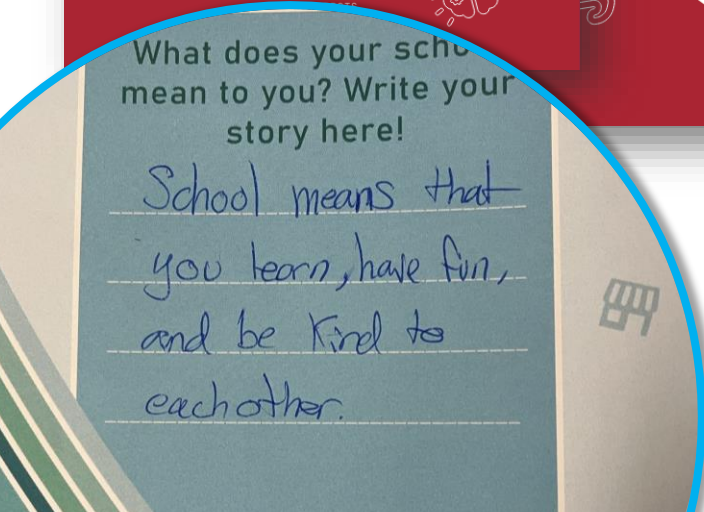 What does your
mean to you? Write your
story here!
School means that
you learn, have fun,
and be kind to
each other.